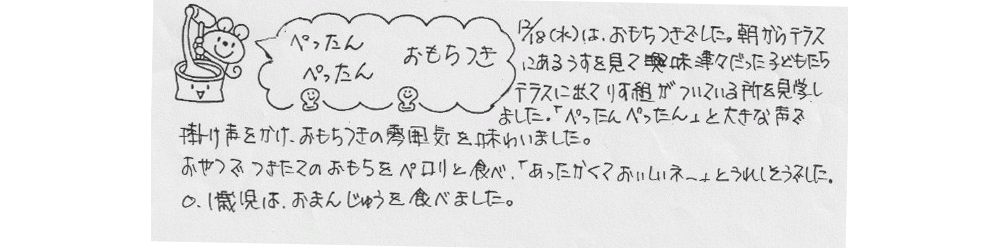 ぺったん
ぺったん
おもちつき
12/18(水)は、おもちつきでした。朝からテラス
にあるうすを見て興味津々だった子どもたち
テラスに出てりす組がついている所を見学し
ました。「ぺったんぺったん」と大きな声で
掛け声をかけ、おもちつきの雰囲気を味わいました。
おやつでつきたてのおもちをペロリと食べ、「あったかくておいしいネー」とうれしそうでした。
0、1歳児は、おまんじゅうを食べました。